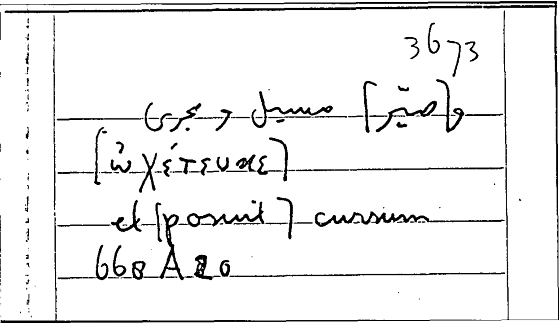 3673
و[صيّر] مسيل و مجرى
[ὠχέτευσε]
et [posuit] cursum
668 A 20